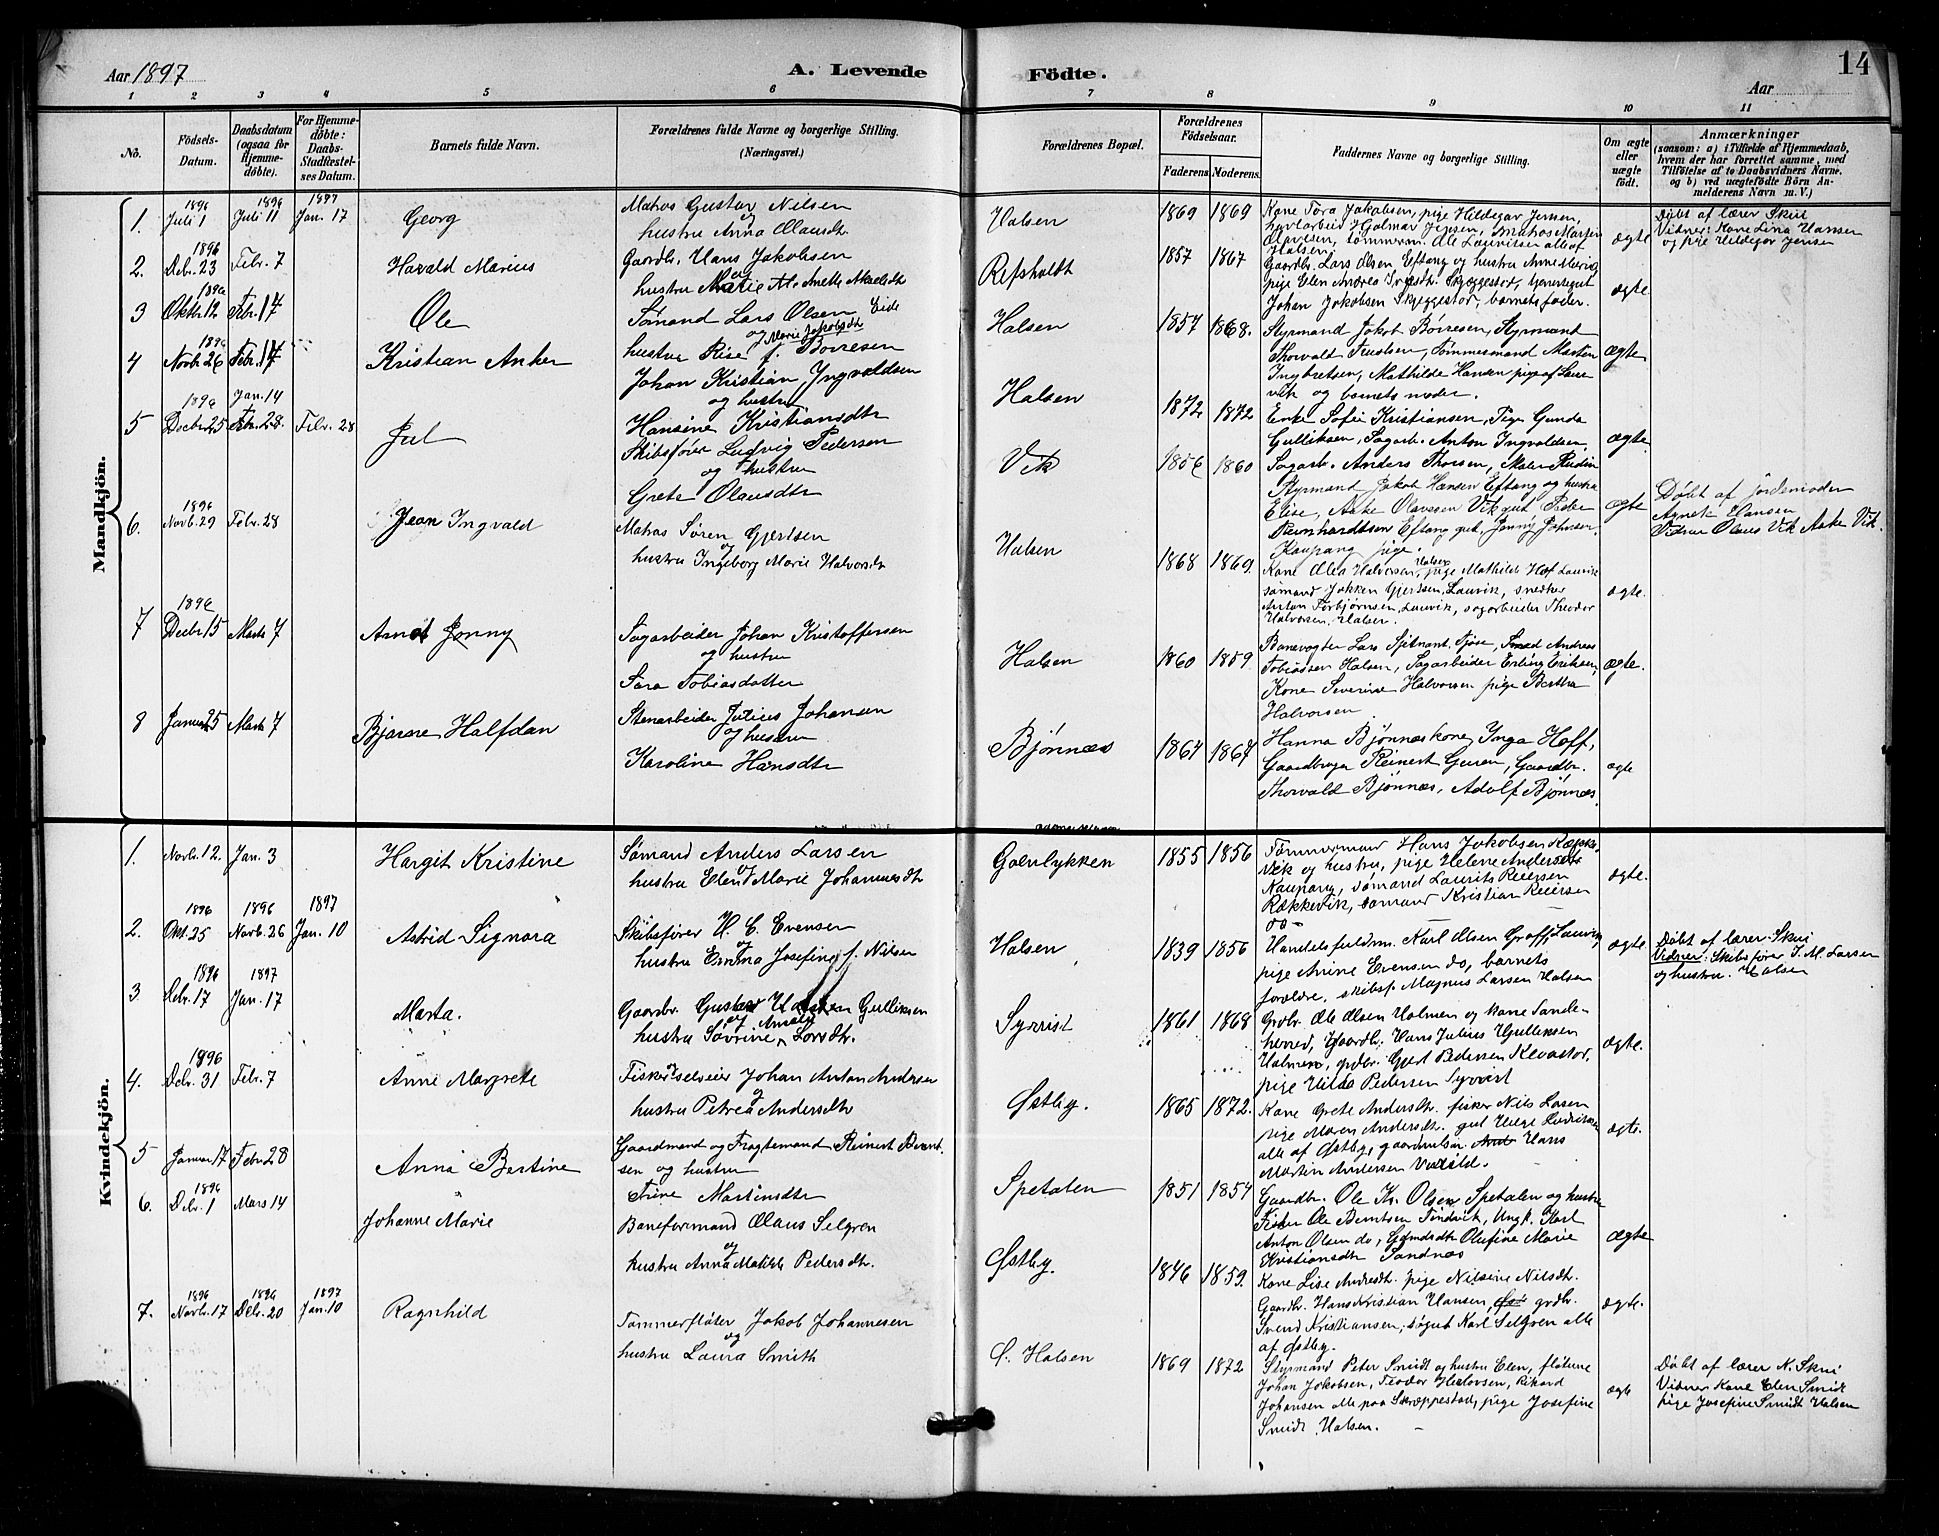 Aar 1897
A. Levende
Födte.
Aar
14
1 2 3 4 5 6 7 8 9 10 11
No.
Födsels-Datum.
Daabsdatum (ogsaa for Hjemme-döbte).
For Hjemme-döbte: Daabs-Stadfæstel-ses Datum.
Barnets fulde Navn.
Forældrenes fulde Navne og borgerlige Stilling. (Næringsvei.)
Forældrenes Bopæl.
Forældrenes Födselsaar.
Faderens. Moderens.
Faddernes Navne og borgerlige Stilling.
Om ægte eller uægte födt.
Anmærkninger
(saasom: a) i Tilfælde af Hjemmedaab, hvem der har forrettet samme, med Tilföielse af to Daabsvidners Navne. og b) ved uægtefödte Börn Anmelderens Navn m. V.)
Mandkjön.
1. 1896 Juli 1 1896 Juli 11 1897 Jan. 17 Georg
Matros Gustav Nilsen
og
hustru Anna Olausdtr.
Halsen 1869 1869
Kone Tora Jakobsen, pige Hildegar Jensen,
Hjalmar Jensen, Matros Marten
Olavesen, tømmerm. Ole Lauritsen alle af
Halsen
ægte
Døbt af lærer Skui
Vidner: Kone Lina Hansen
og pige Hildegar Jensen
2. 1896 Debr. 23 Febr. 7 Harald Marius
Gaardbr. Hans Jakobsen
og
hustru Marie M. Anette Akselsdtr
Refsholdt 1857 1867
Gaardbr. Lars Olsen Eftang og hustru Anne Marie
pige Elen Andrea Skjeggestor,
Johan Jakobsen Skjeggestor, barnets fader.
ægte.
3 1896 Oktbr. 12 Febr. 14 Ole
Sømand Lars Olsen Eide
og Marie Jakobsdtr
hustru Rise f. Borresen
Halsen 1857 1868.
Styrmand Jakob Børresen, Styrmand
Thorvald Knudsen, Tømmesmand Marten
Ingbretsen, Mathilde Hansen pige af Laur
vik og barnets moder.
ægte
4 1896 Novbr. 26 Febr. 14 Kristian Anker
Johan Kristian Ingvaldsen
og hustru
Hansine Kristiansdtr
Halsen 1872 1872
Enke Sofie Kristiansen, Pige Gunda
Gulliksen, Sagarb. Anton Ingvaldsen,
Sagarb. Anders Thorsen, Maler Rudin
ægte.
5 1896 Decbr. 25 Jan. 14 Febr. 28. Febr. 28 Jul
Skibsfører Ludvig Pedersen
og hustru
Grete Olausdtr
Vik 1856 1860
Styrmand Jakob Hansen Eftang og hustru
Elise, Aske Olavssen Vik gut Peder
Reinhardtsen Eftang gut, Jonny Johnsen
Kaupang pige.
ægte
Døbt af jordemoder
Agnete Hansen
Vidner Olaus Vik Aske Vik.
6. 1896 Novb. 29 Febr. 28 Jean Ingvald
Matros Sören Gjertsen
og
hustru Ingeborg Marie Halvorsdtr
Halsen 1868 1869.
Kone Olea Halvorsen Halsen, pige Mathilde Hof Laurvik
sømand Jokken Gjertsen, Laurvik, snedker
Anton Torbjørnsen, Laurvik, sagarbeider Theodor
Halvorsen, Halsen.
ægte.
7 1896 Decbr. 15 Marts 7 Arnt Jonny
Sagarbeider Johan Kristoffersen
og hustru
Sara Tobiasdatter
Halsen 1860 1859.
Banevogter Lars Spitnant, Tjøse, Smed Andreas
Tobiassen Halsen, Sagarbeider Erling Eriksen,
Kone Severine Halvorsen pige Bertha
Halvorsen
ægte.
8 Januar 25 Marts 7 Bjarne Halfdan
Stenarbeider Julius Johansen
og hustru
Karoline Hansdtr
Bjønnæs 1864 1867
Hanna Bjønnæs kone, Inga Hoff,
Gaardbruger Reinert Guren, Gaardbr.
Thorvald Bjønnæs, Adolf Bjønnæs.
ægte
Kvindekjön.
1. Novbr. 12. Jan. 3 Hargit Kristine
Sømand Anders Larsen
og
hustru Elen Marie Johannesdtr
Golenlykken 1855 1856
Tømmermand Hans Jakobsen Række
vik og hustru, pige Helene Andersdtr
Kaupang, sømand Laurits Reiersen
Rækkevik, sømand Kristian Reiersen
do –
ægte.
2. 1896 Okt. 25 1896 Novb. 26 1897 Jan. 10 Astrid Signora
Skibsfører H. C. Evensen
og
hustru Emma Josefine f. Nilsen
Halsen 1839 1856
Handelsfuldm. Karl Olsen Graff, Laurvig
pige Anine Evensen do, barnets
forældre, skibsf. Magnus Larsen Halsen
ægte
Døbt af lærer. Skui
Vidner: Skibsfører I. M. Larsen
og hustru. Halsen
3. 1896 Debr. 17 1897 Jan. 17 Marta.
Gaardbr. Gustav Gulliksen
og Amalie
hustru Sovrine Larsdtr.
Syrrist 1861 1868
Grdbr. Ole Olsen Holmen og kone Sande-
herred, Gaardbr. Hans Julius Gulliksen
Holmen, grdbr. Gjert Pedersen Klevastor,
pige Hilda Pedersen Syrrist
ægte.
4. 1896 Debr. 31 Febr. 7 Anne Margrete
Fisker, selveier Johan Antan Andersen
og
hustru Petrea Andersdtr
Østby. 1865 1872.
Kone Grete Andersdtr. fisker Nils Larsen
pige Maren Andersdtr. gut Helge Ludvigsen
alle af Østby, Hans
Martin Andersen Varild.
ægte.
5 Januar 17 Febr. 28 Anna Bertine
Gaardmand og Fragtemand Reinert Bernt-
sen og hustru
Trine Martinsdtr
Spetalen 1851 1854
Gaardbr. Ole Kr. Olsen Spetalen og hustru
Fisker Ole Berntsen Tindvik, Ungk. Karl
Anton Olsen do, Gdmdsdtr Olufine Marie
Kristiansdtr Sandnæs
ægte
6. 1896 Debr. 1 Mars 14 Johanne Marie
Baneformand Olaus Selgren
og
hustru Anna Matilde Pedersdtr.
Østby. 1846 1859.
Kone Lise Andrædtr. pige Nilsine Nilsdtr.
Gaardbr. Hans Kristian Hansen, grdbr.
Svend Kristiansen, Karl Selgren alle
af Østby.
ægte.
7. 1896 Novbr. 17 1896 Debr. 20 1897 Jan. 10 Ragnhild
Tømmerfløter Jakob Johannesen
og
hustru Laura Smith
S. Halsen 1869 1872
Styrmand Peter Smidt og hustru Elen, fløterne
Johan Jakobsen, Teodor Herlovsen, Rikard
Johansen alle paa Skræppestad, pige Josefine
Smidt, Halsen. –
ægte
Døbt af lærer N. Skui
Vidner Kone Elen Smidt
pige Josefine Smidt Halsen